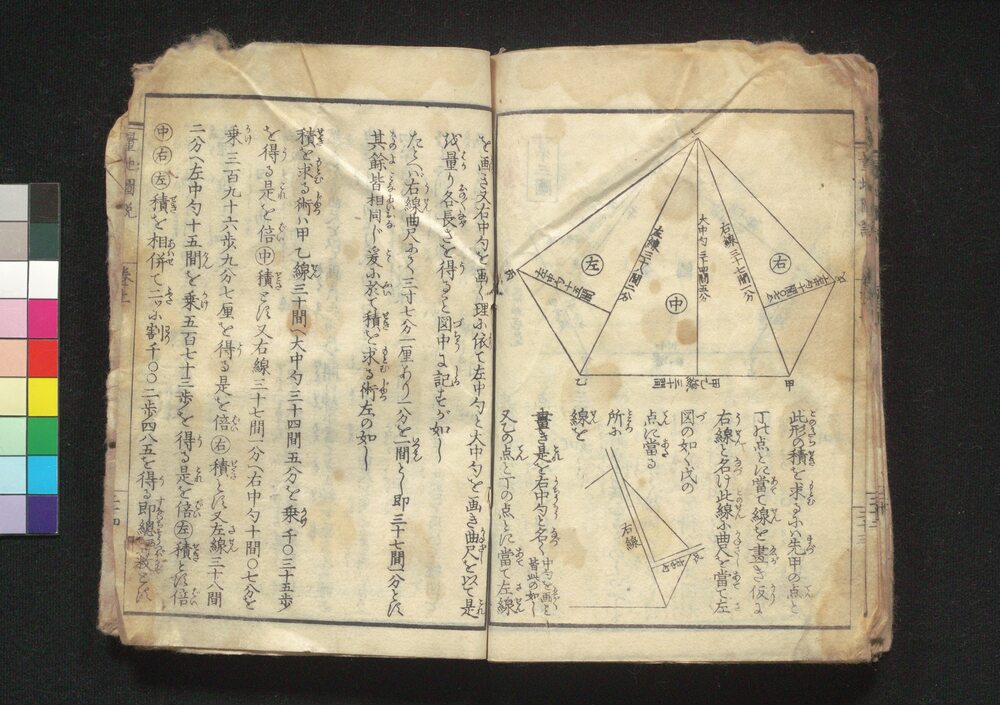 丁
右
左
中
大中勺三十四間五分
右線三十七間一分
左線三十八間二分
甲乙線三十間
戊
己
乙
甲
此形の積を求るにハ先甲の点と
丁の点とに當て線を畫き仮に
右線と名け此線に曲尺を當て左
図の如く戊の
点に當る
所に
線を
畫き是を右中勺と名く中勺を画こと皆此の如し
又乙の点と丁の点とに當て左線
右線
を画き又右中勺を画く理に依て左中勺と大中勺を画き曲尺を以て是
を量り各長さを得ること図中に記すが如し
たとへバ右線曲尺にて三寸七分一厘あり一分を一間とし即三十七間一分とす
其餘皆相同じ爰に於て積を求る術左の如し
積を求る術ハ甲乙線三十間へ大中勺三十四間五分を乗千〇三十五歩
を得る是を倍中積とす又右線三十七間一分へ右中勺十間〇七分を
乗三百九十六歩九分七厘を得る是を倍右積とす又左線三十八間
二分へ左中勺十五間を乗五百七十三歩を得る是を倍左積とす倍
中右左積を相併て二ツに割千〇〇二歩四八五を得る即總
量地圖説
巻上